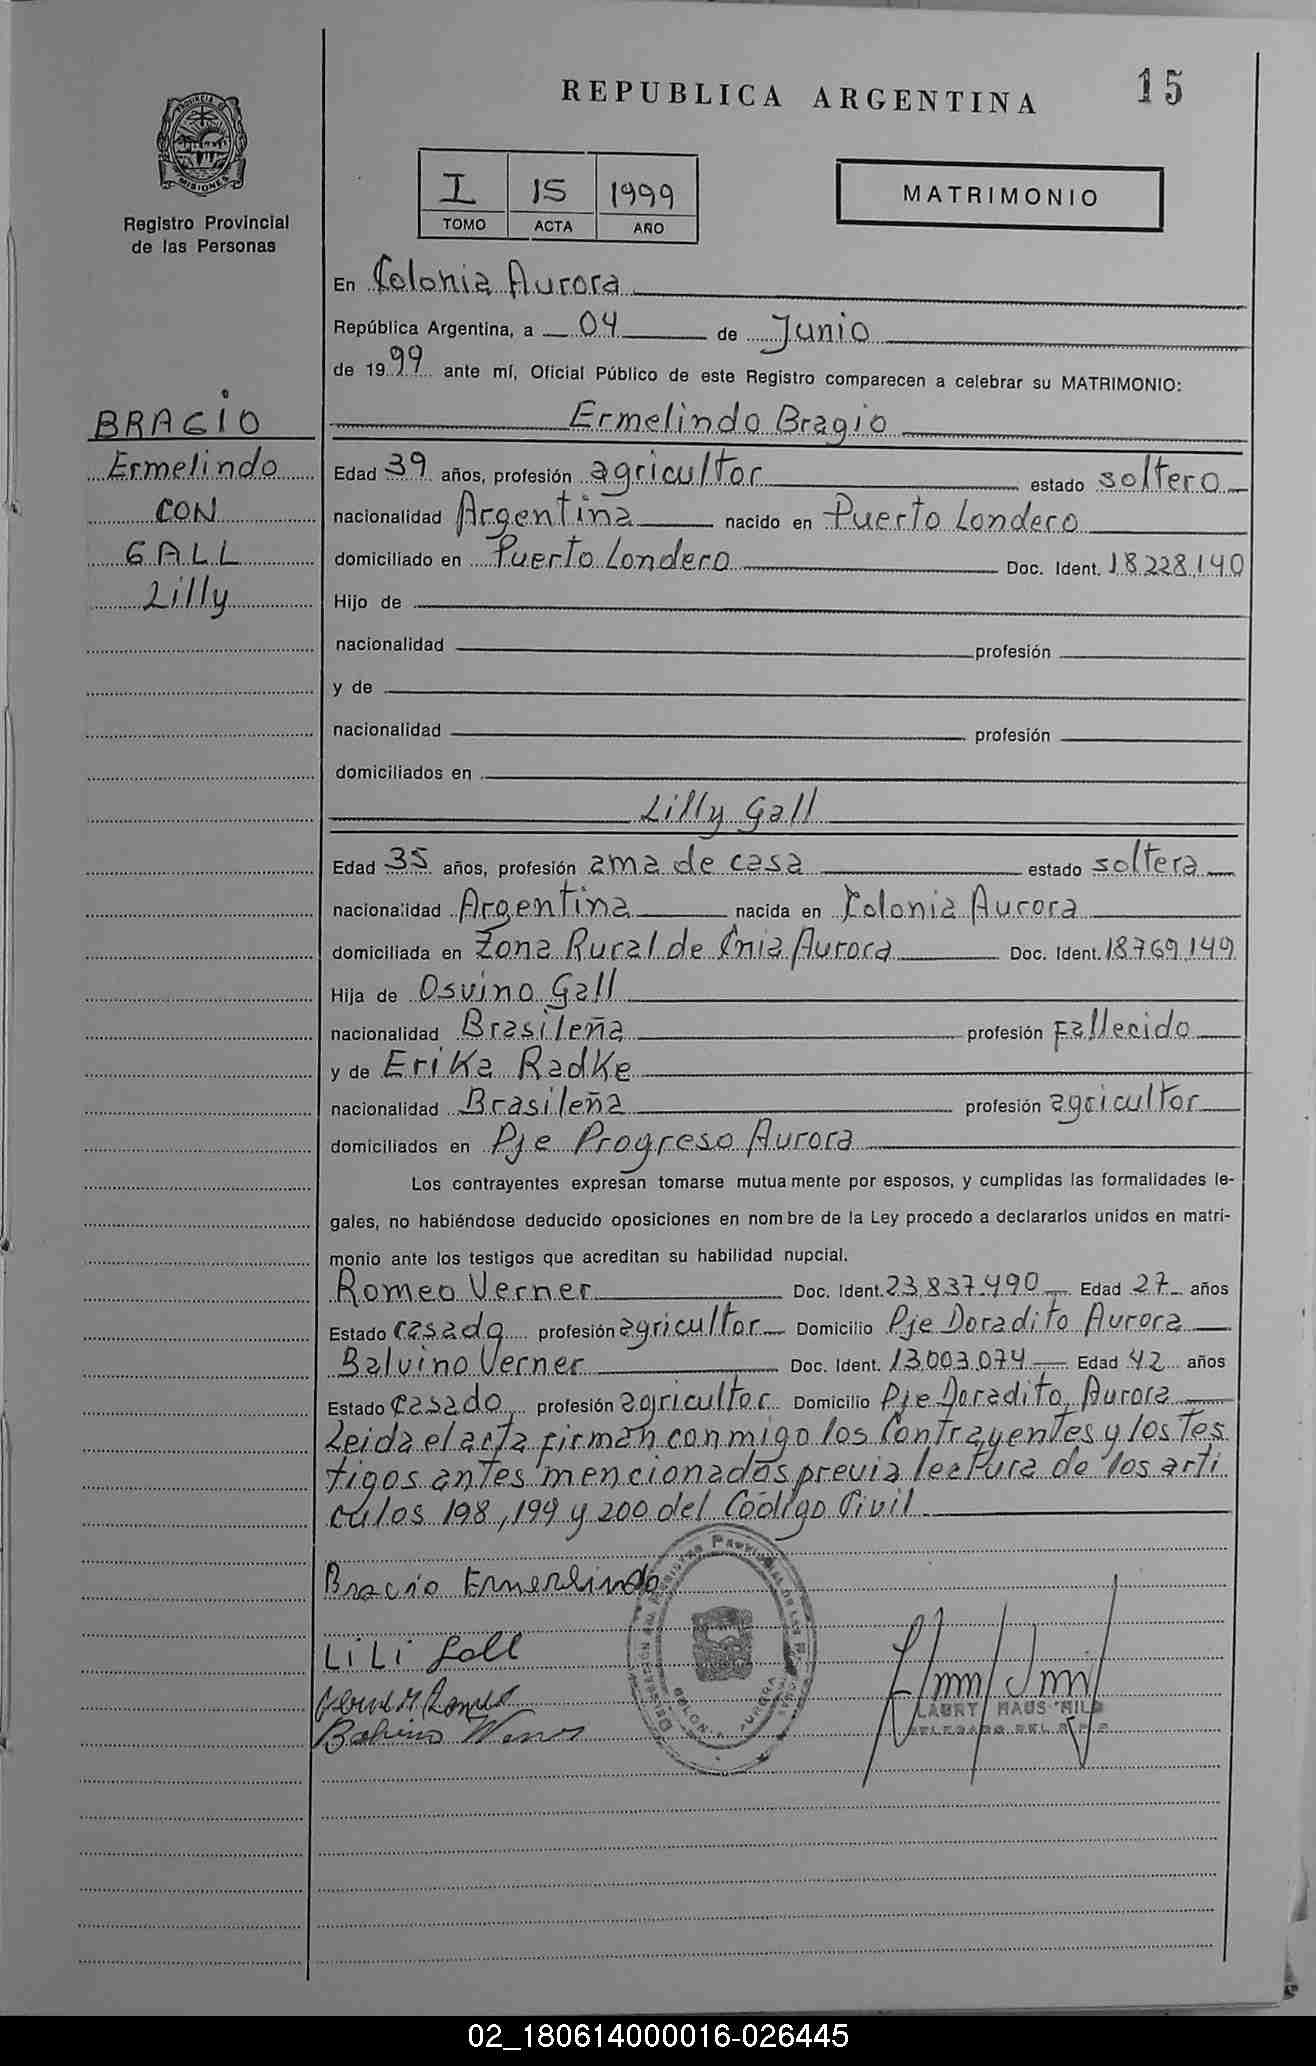 REPUBLICA ARGENTINA
15
PROVINCIA DE MISIONES
Registro Provincial
de las Personas
I 15 1999
TOMO ACTA AÑO
MATRIMONIO
En Colonia Aurora
República Argentina, a 04 de Junio
de 1999 ante mí, Oficial Público de este Registro comparecen a celebrar su MATRIMONIO:
BRAGIO
Ermelindo
CON
GALL
Lilly
Ermelindo Bragio
Edad 39 años, profesión agricultor estado soltero
nacionalidad Argentina nacido en Puerto Londero
domiciliado en Puerto Londero Doc. Ident. 18.228.140
Hijo de
nacionalidad profesión
y de
nacionalidad profesión
domiciliados en
Lilly Gall
Edad 35 años, profesión ama de casa estado soltera
nacionalidad Argentina nacida en Colonia Aurora
domiciliada en Zona Rural de Cnia Aurora Doc. Ident. 18.769.149
Hija de Osvino Gall
nacionalidad Brasileña profesión Fallecido
y de Erika Radke
nacionalidad Brasileña profesión agricultor
domiciliados en Pje Progreso Aurora
Los contrayentes expresan tomarse mutuamente por esposos, y cumplidas las formalidades le-
gales, no habiéndose deducido oposiciones en nombre de la Ley procedo a declararlos unidos en matri-
monio ante los testigos que acreditan su habilidad nupcial.
Romeo Verner Doc. Ident. 23.837.490 Edad 27 años
Estado casado profesión agricultor Domicilio Pje Doradito Aurora
Balvino Verner Doc. Ident. 13.003.074 Edad 42 años
Estado casado profesión agricultor Domicilio Pje Doradito Aurora
Leida el acta firman conmigo los Contrayentes y los Tes
tigos antes mencionados previa lectura de los arti
culos 198, 199 y 200 del Código Civil
Bracio Ermerlindo
LiLi Gall
02_180614000016-026445